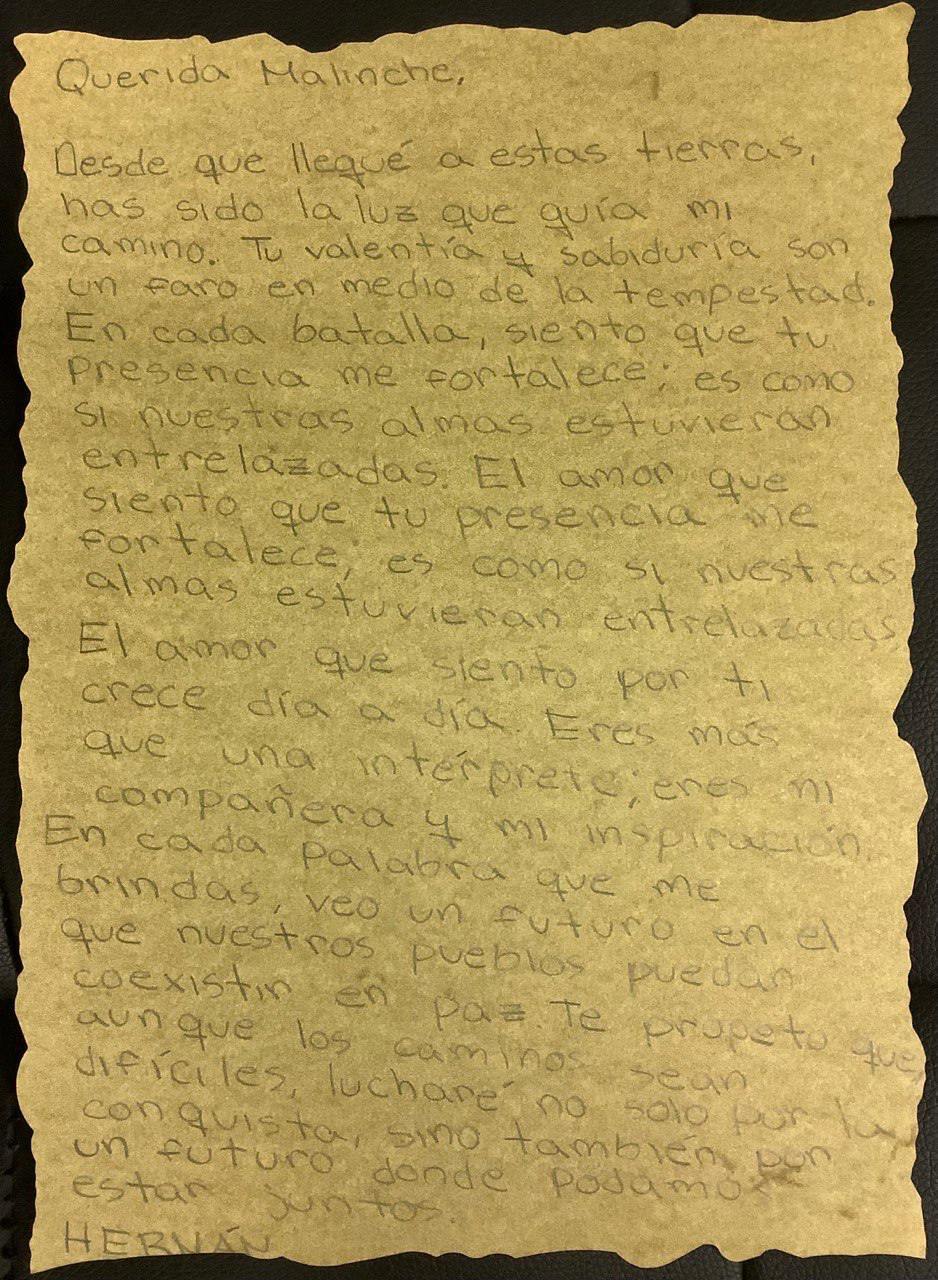 Querida Malinche,
Desde que llegué a estas tierras,
has sido la luz que guía mi
camino. Tu valentía y sabiduría son
un faro en medio de la tempestad.
En cada batalla, siento que tu
presencia me fortalece; es como
si nuestras almas estuvieran
entrelazadas. El amor que
siento que tu presencia me
fortalece; es como si nuestras
almas estuvieran entrelazadas
El amor que siento por ti
crece día a día. Eres más
que una intérprete; eres mi
compañera y mi inspiración.
En cada palabra que me
brindas, veo un futuro en el
que nuestros pueblos puedan
coexistir en paz. Te prometo que,
aunque los caminos sean
difíciles, lucharé no solo por la
conquista, sino también por
un futuro donde podamos
estar juntos.
HERNÁN